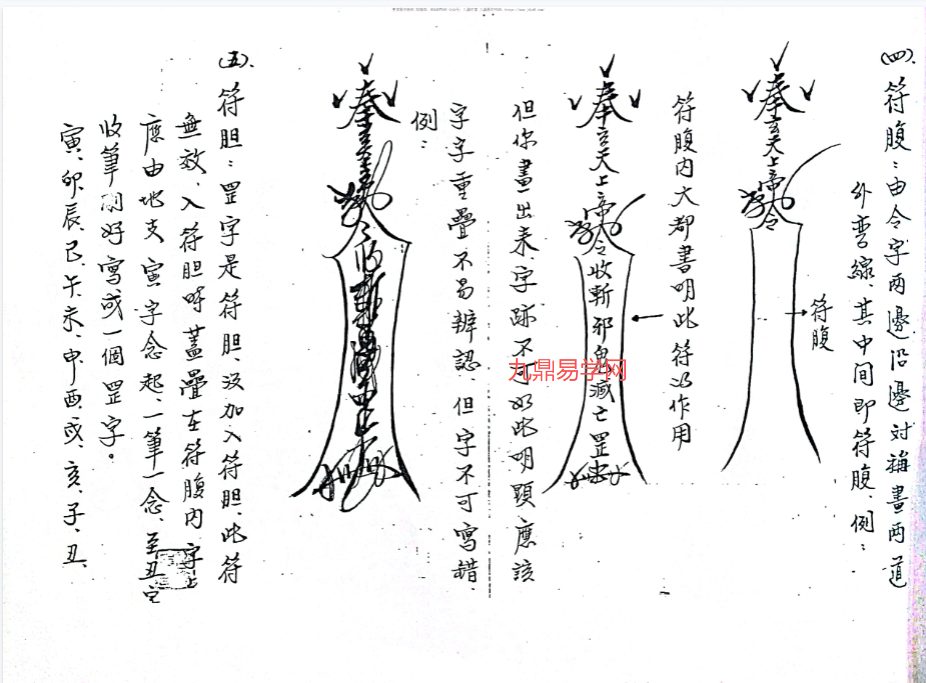 (四)、符腹：由令字兩邊沿邊对称畫两道
外弯線、其中间即符腹、例：
奉玄天上帝勅令
符腹
符腹内大都書明此符以作用
奉玄天上帝勅令收斬邪鬼滅亡罡
但你畫出来、字跡不可如此明顯應該
字字重疊不易辨認、但字不可寫錯、
例：
奉
(五)、符胆：罡字是符胆、没加入符胆、此符
無效、入符胆時蓋疊在符腹内、字上
應由地支寅字念起、一筆一念、至丑字
收筆刚好寫成一個罡字。
寅、卯、辰、巳、午、未、申、酉、戌、亥、子、丑、
九鼎易学网